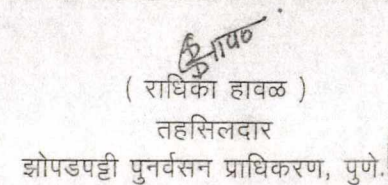 ( राधिका हावळ )
तहसिलदार
झोपडपट्टी पुनर्वसन प्राधिकरण, पुणे.